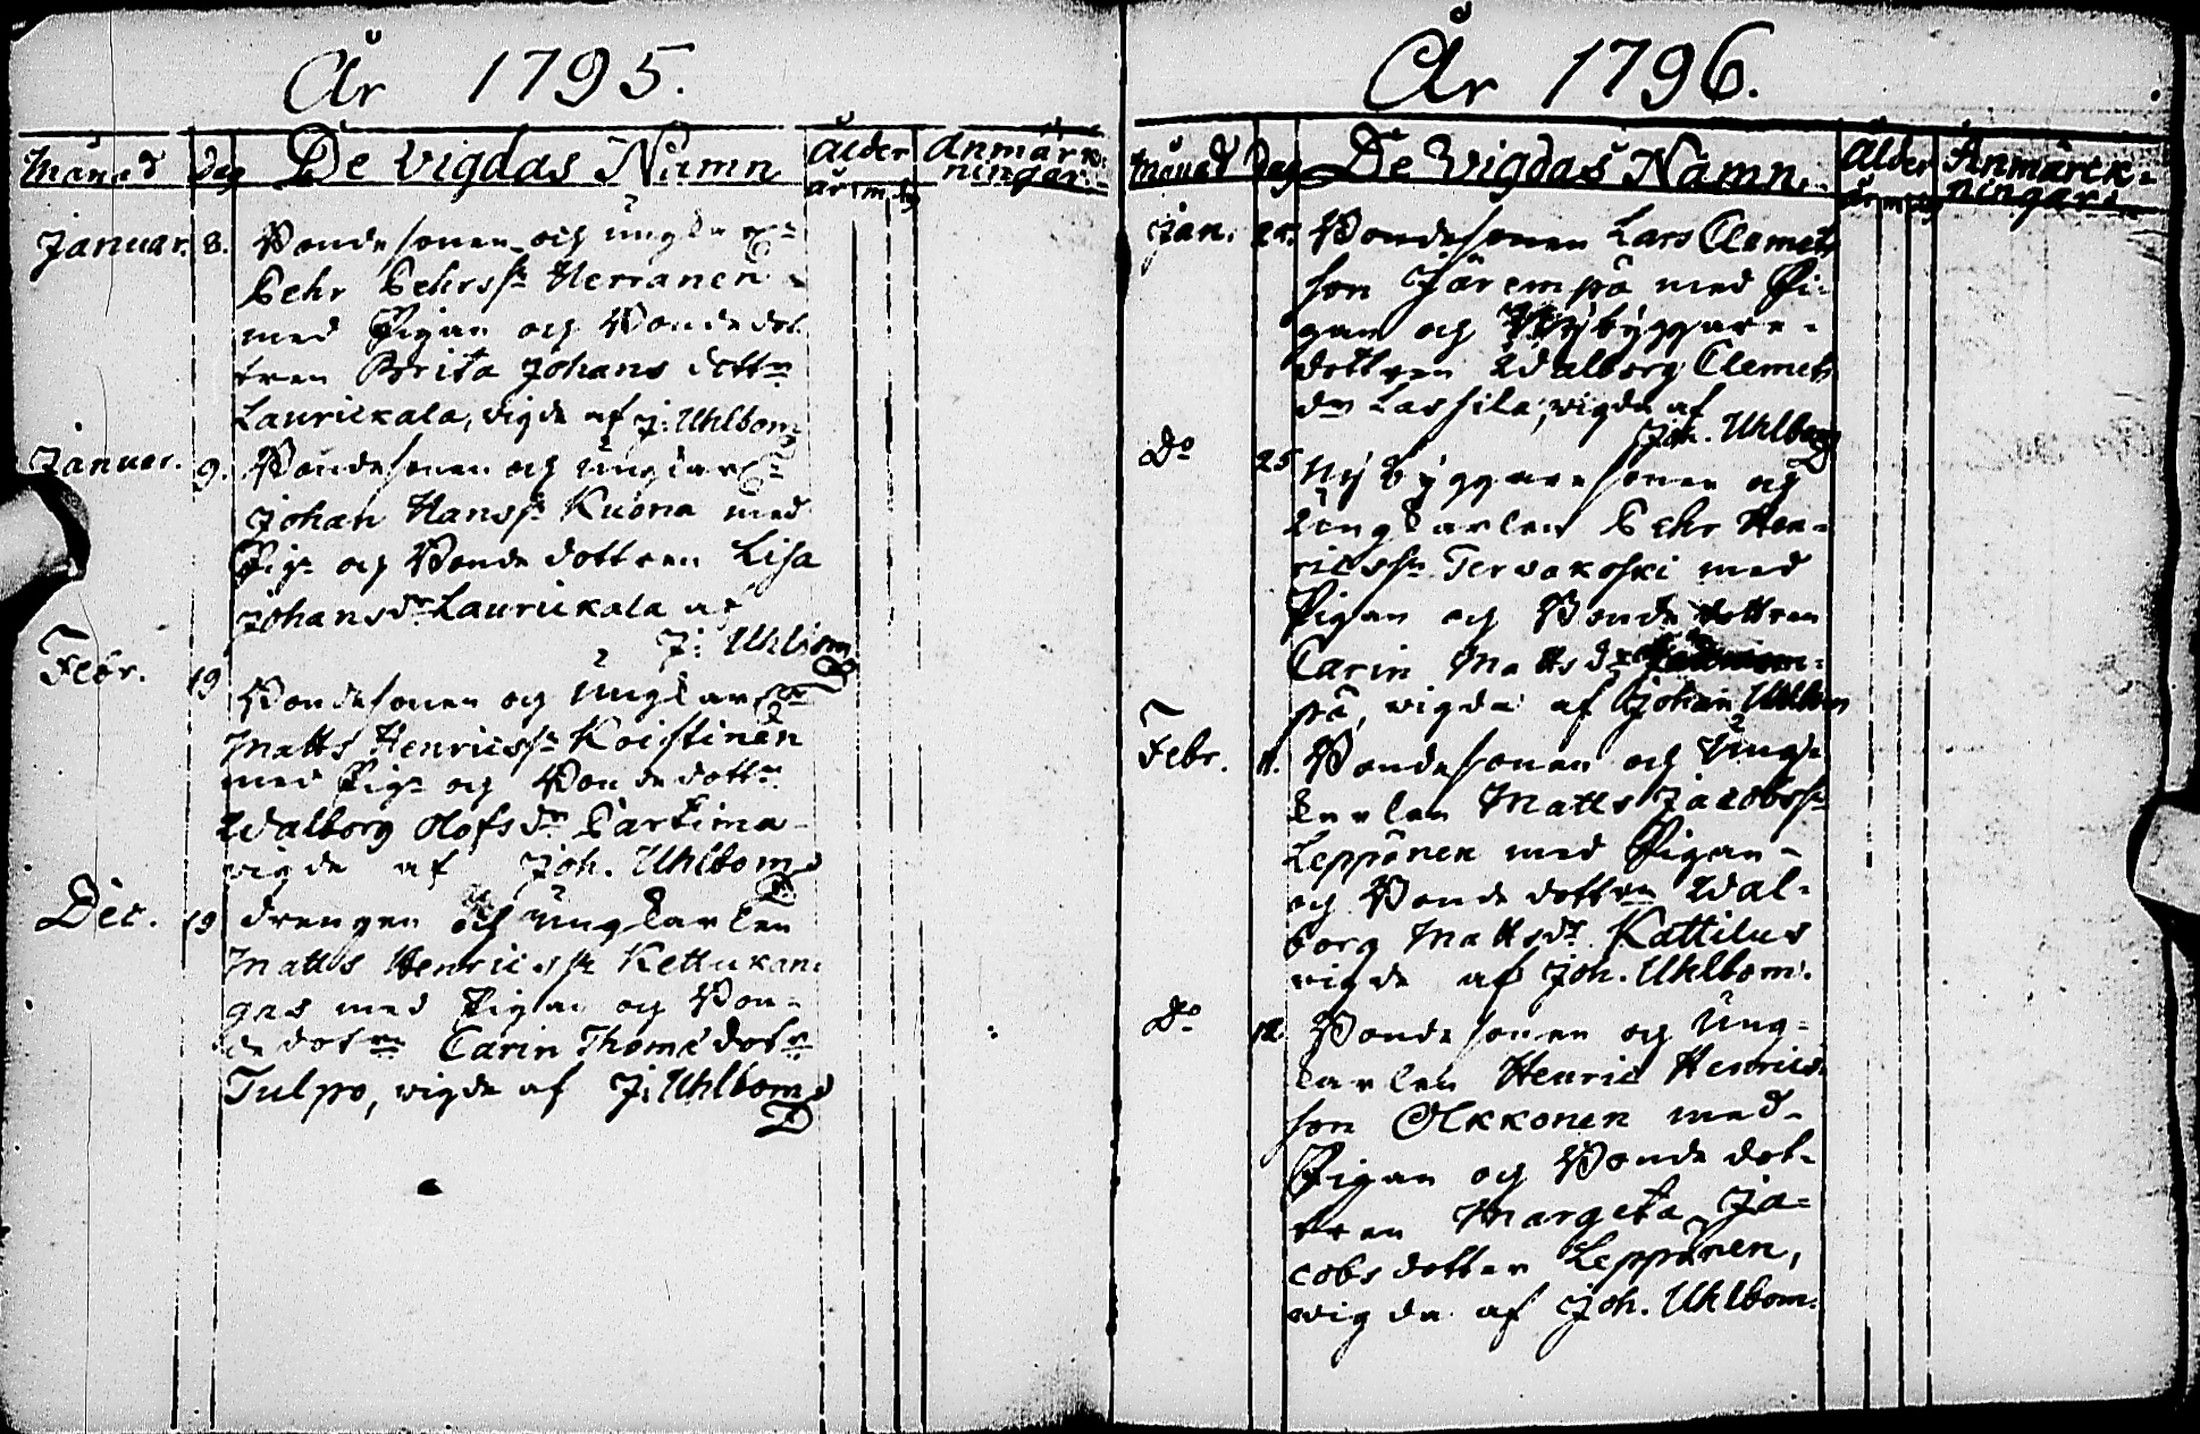 År 1795.
Månad Dag De Vigdas Namn Ålder Anmärk-
år m d ningar.
Januar. 8. Bondesonen och ungkarln
Pehr Pehrss: Herranen
med Pigan och Bondedot
tren Brita Johans dottr
Laurickala, vigde af J: Uhlbom
Januar. 9. Bondesonen och ungkarln
Johan Hanss: Kuona med
Pig: och Bonde dottren Lisa
Johansdr Laurickala af
J: Uhlbom
Febr. 19 Bondesonen och Ungkarln
Matts Henricss: Koistinen
med Pig: och Bondedottr
Walborg Olofsdr Partima
vigde af Joh. Uhlbom
Dec. 19 drengen och ungkarlen
Matts Henricss: Kettukan:
gas med Pigan och Bon-
de dotrn Carin Thomædotr
Tulpo, vigde af J: Uhlbom
År 1796.
Månad Dag De Vigdas Namn. Ålder Anmärck-
år m d ningar.
Jan. Bondesonen Lars Clemets
son Järempä med Pi-
gan och Nybyggare-
dottren Walborg Clemets
dr Lassila, vigde af
Joh. Uhlbom
Do 25 Nybyggaresonen och
Ungkarlen Pehr Hen-
ricssn Terwakoski med
Pigan och Bonde dottren
Carin Matts dr
pä, vigde af Johan Uhlbom
Febr. 11. Bondesonen och Ung-
karlen Matts Jacobss:
Leppänen med Pigan
och Bonde dottren Wal-
borg Mattsdr Kattilus
vigde af Joh. Uhlbom.
Do 12 Bonde sonen och Ung-
karlen Henric Henrics-
son Olkkonen med
Pigan och Bonde dot-
tren Margeta Ja-
cobs dotter Leppänen,
vigde af Joh. Uhlbom.